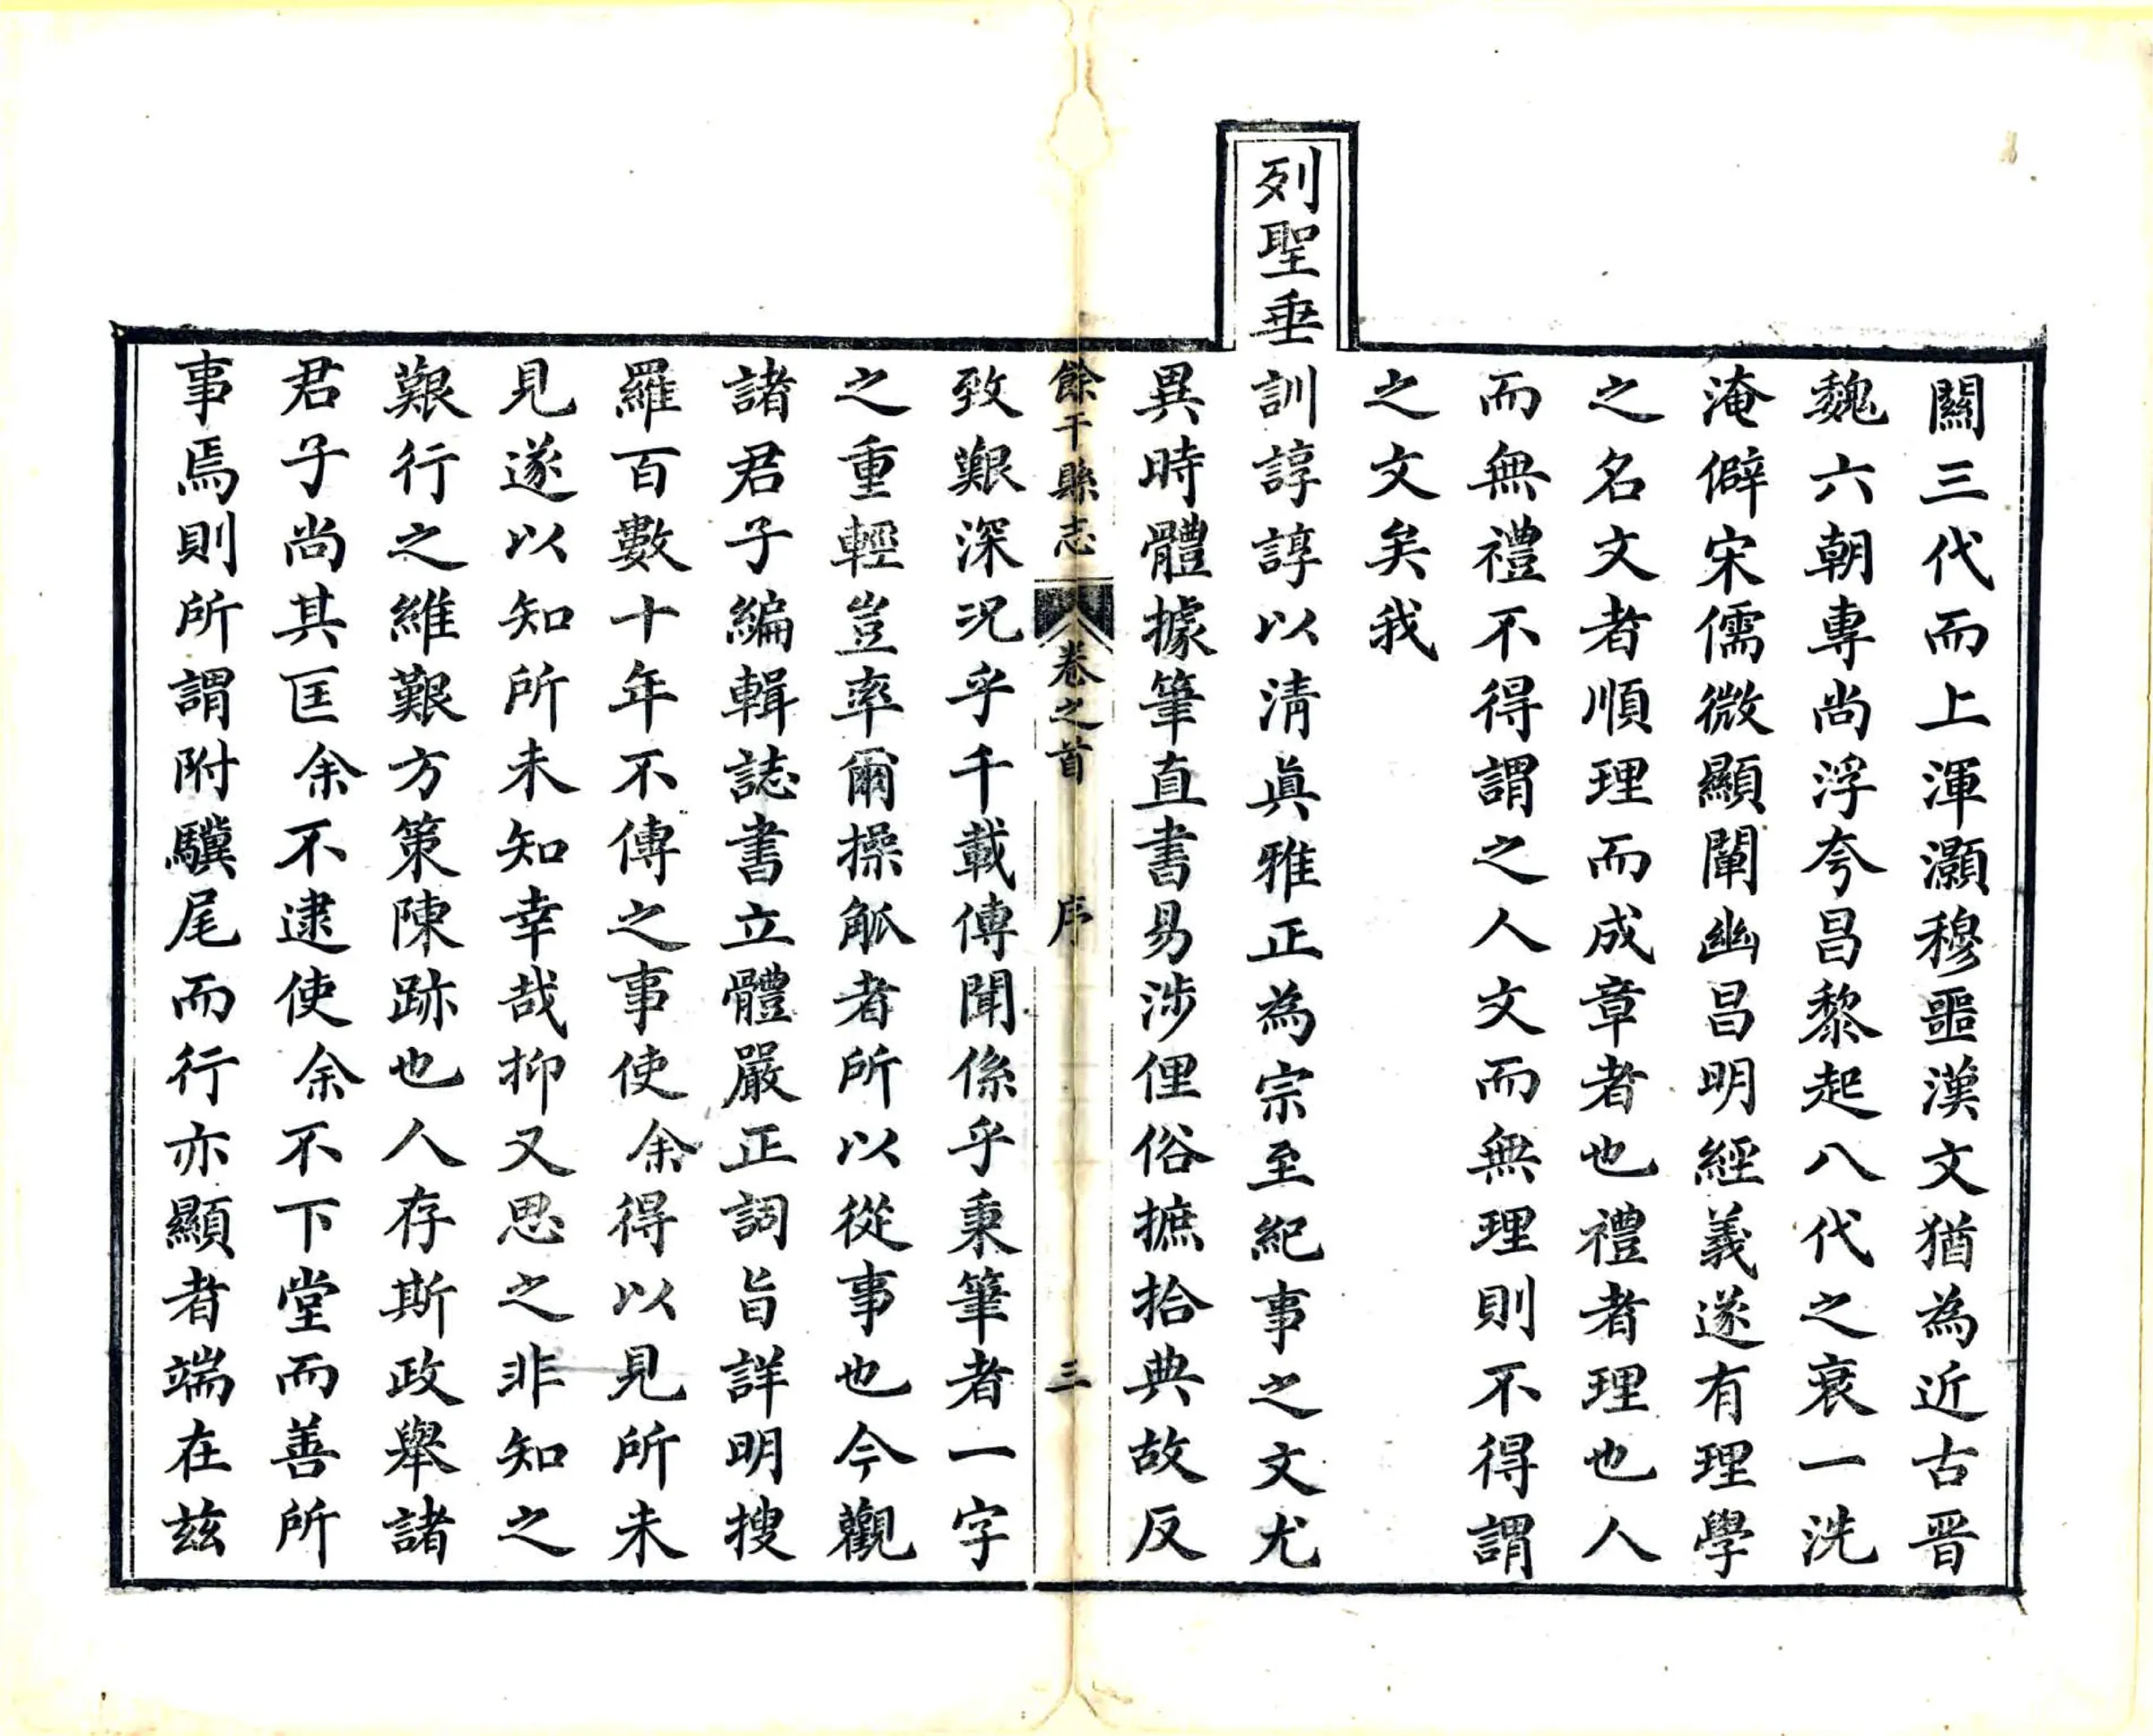 關三代而上渾灝穆噩漢文猶為近古晉
魏六朝專尚浮夸昌黎起八代之衰一洗
淹僻宋儒微顯闡幽昌明經義遂有理學
之名文者順理而成章者也禮者理也人
而無禮不得謂之人文而無理則不得謂
之文矣我
列聖垂訓諄諄以清眞雅正為宗至紀事之文尤
異時體據筆直書易涉俚俗摭拾典故反
餘干縣志 卷之首 序 三
致艱深況乎千載傳聞係乎秉筆者一字
之重輕豈率爾操觚者所以從事也今觀
諸君子編輯誌書立體嚴正詞旨詳明搜
羅百數十年不傳之事使余得以見所未
見遂以知所未知幸哉抑又思之非知之
艱行之維艱方策陳跡也人存斯政舉諸
君子尚其匡余不逮使余不下堂而善所
事焉則所謂附驥尾而行亦顯者端在兹